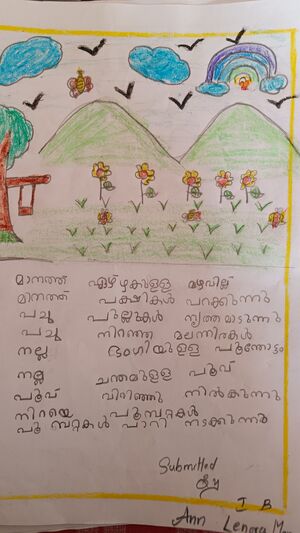 മാനത്ത് ഏഴഴകുള്ള മഴവില്ല്
മാനത്ത് പക്ഷികൾ പറക്കുന്നു
പച്ച പുല്ലുകൾ നൃത്തമാടുന്നു
പച്ച നിറഞ്ഞ മലനിരകൾ
നല്ല ഭംഗിയുള്ള പൂന്തോട്ടം
നല്ല ചന്തമുള്ള പൂവ്
പൂവ് വിരിഞ്ഞു നിൽകുന്നു
നിറയെ പൂമ്പറ്റകൾ
പൂമ്പറ്റകൾ പാറി നടക്കുന്നു
Submitted
By
I B
Ann Lenora M